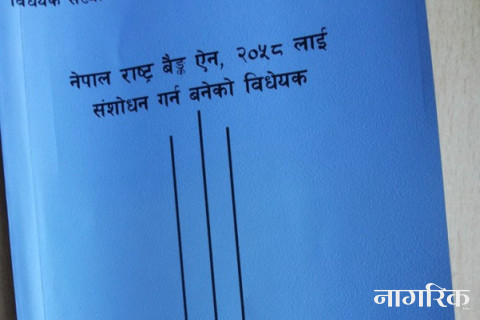 विधेयक संख्या
नेपाल राष्ट्र बैङ्क ऐन, २०५८ लाई
संशोधन गर्न बनेको विधेयक
नागरिक